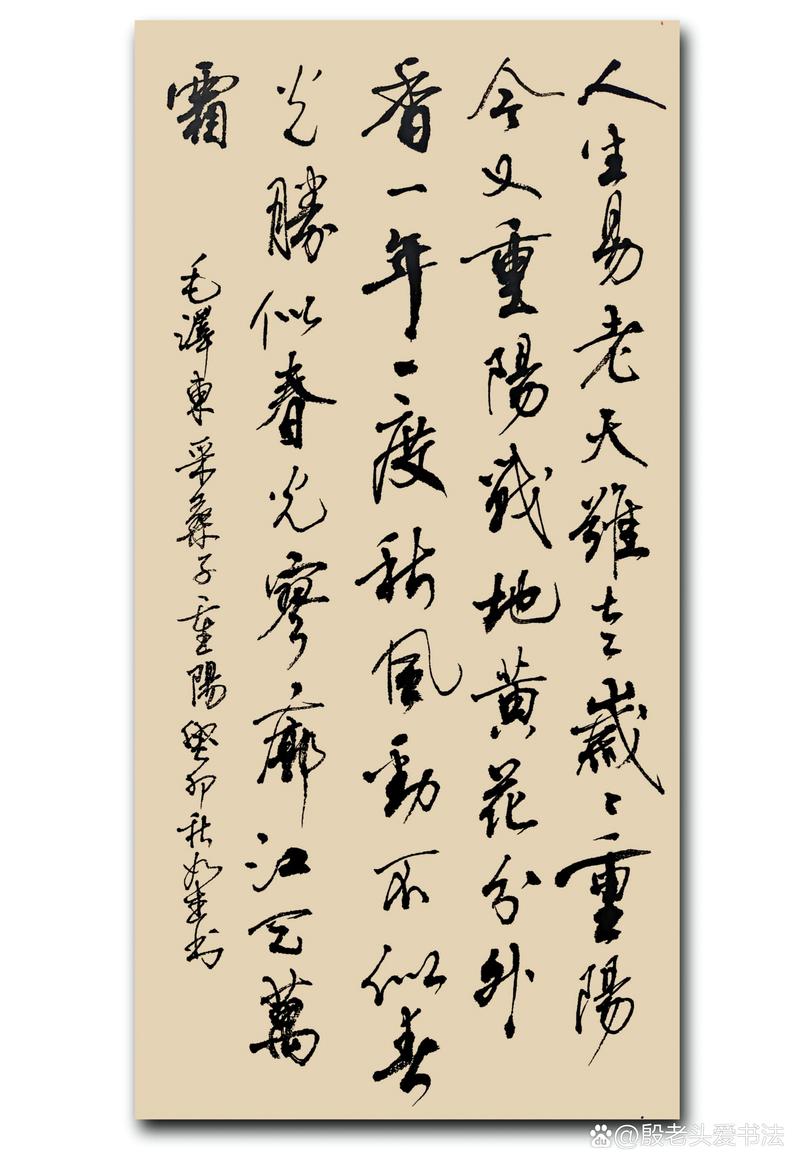 人生易老天難老歲〻重陽
今又重陽戰地黄花分外
香一年一度秋風勁不似春
光勝似春光寥廓江天萬
霜
毛澤東采桑子重陽癸卯秋如书
@殷老头爱书法